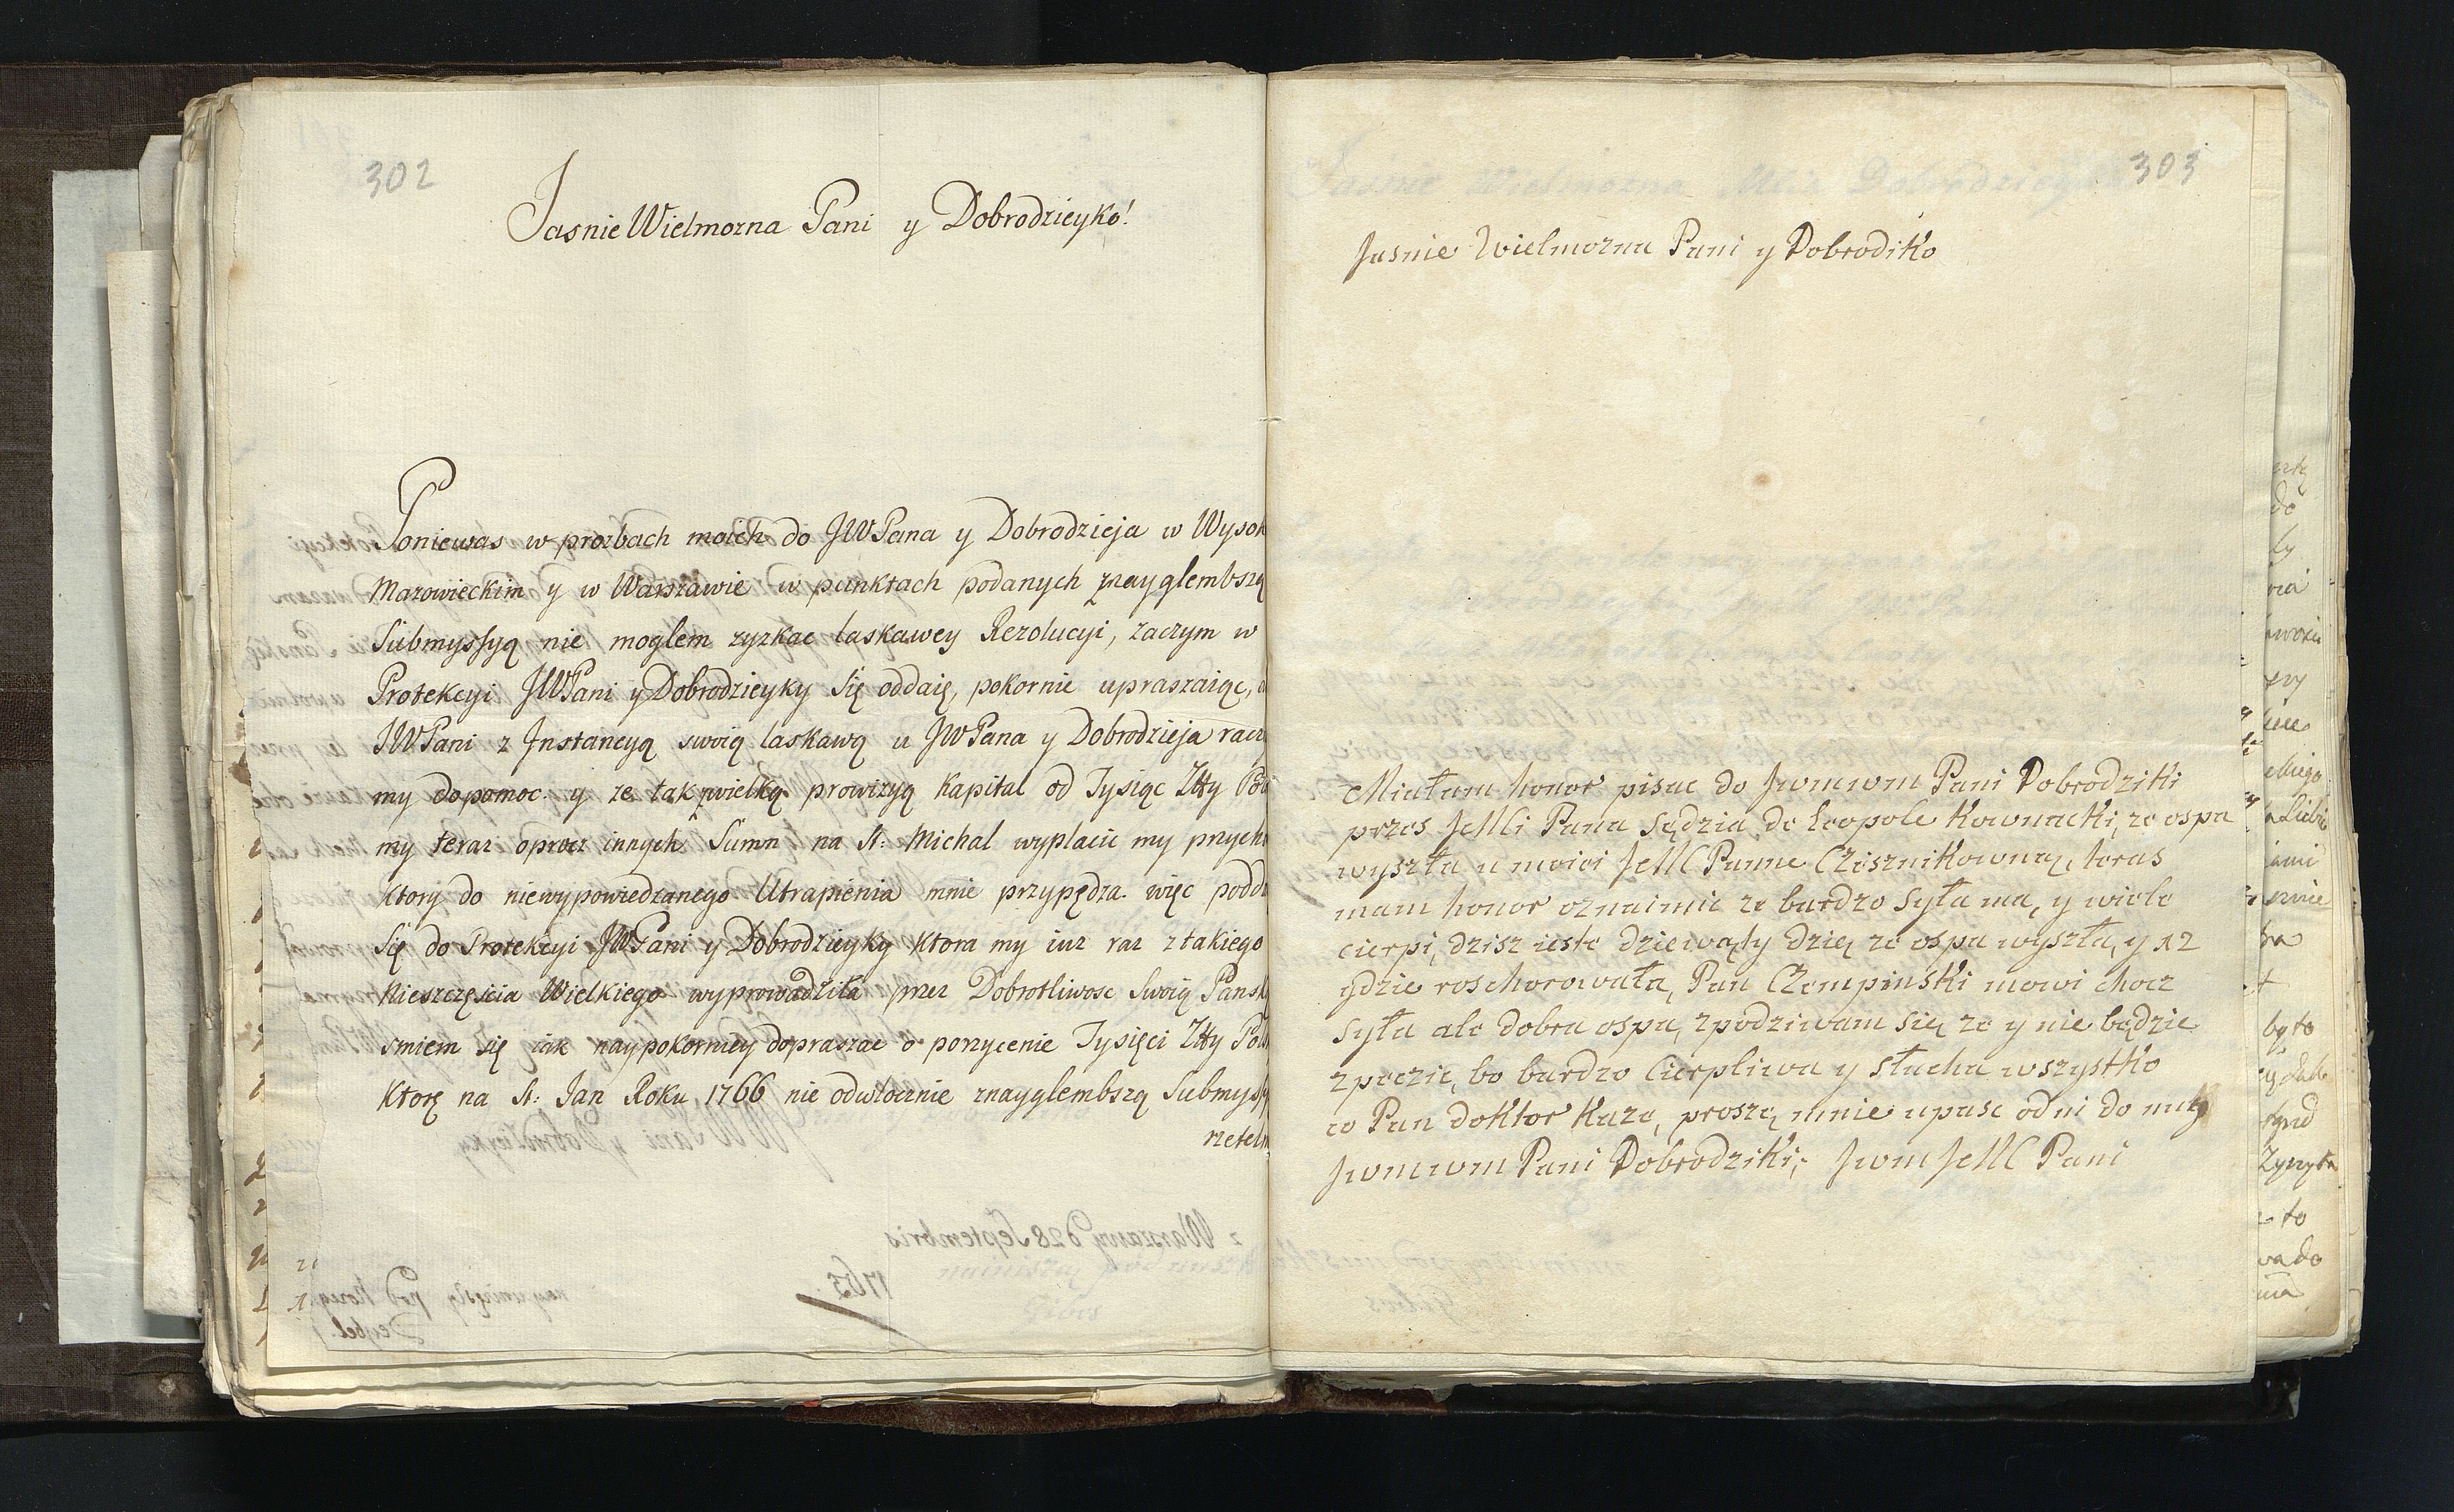 302
Jasnie Wielmozna Pani y Dobrodzieyko!
Poniewas w prozbach moich do JWPana y Dobrodzieja w Wysok
Mazowieckim y w Warszawie w punktach podanych znayglembszą
Submyssyą nie moglem zyzkac laskawey Rezolucyi, zaczym w
Protekcyi JWPani y Dobrodzieyky się oddaię, pokornie upraszaiąc,
JWPani z Jnstancyą swoią laskawą u JWPana y Dobrodzieja racz
my dopomoc. y ze tak wielką prowizyą Kapital od Tysiąc Złty Pol
my teraz oprocz innych Summ na St: Michal wyplacic my prych
Ktory do niewypowiedzanego Utrapienia mnie przypędza. więc podda
Się do Protekcyi JWPani y Dobrodzieyky Ktora my iuz raz ztakiego
Nieszczęscia Wielkiego wyprowadziła przez Dobrotliwosc Swoią Pansk
smiem się iak naypokorniey dopraszac o pozycenie Tysięci Złty Pol
Ktorę na St: Jan Roku 1766 nie odwłocznie znayglembszą Submyss
rzeteln
303
Jasnie Wielmozna Pani y Dobrodiko
Miałam honor pisac do Jwmwm Pani Dobrodziki
przes JeMCi Pana Sędzia de Leopole Kownacki, ze ospa
wyszła u moici JeMC Panne Czesznikowną, teras
mam honor oznaimic ze bardzo Syła ma, y wiele
cierpi, dzisz ieste dziewąty dzię ze ospa wyszła, y 12
gdzie roschorowała, Pan Czempinski mowi chocz
syła ale dobra ospa, zpodziwam się ze y nie będzie
zpeczic, bo bardzo Cierpliwa y słucha wszystko
co Pan doktor Kaze, proszę mnie upasc od ni do nug
Jwmwm Pani Dobrodziki; Jwm JeMC Pani